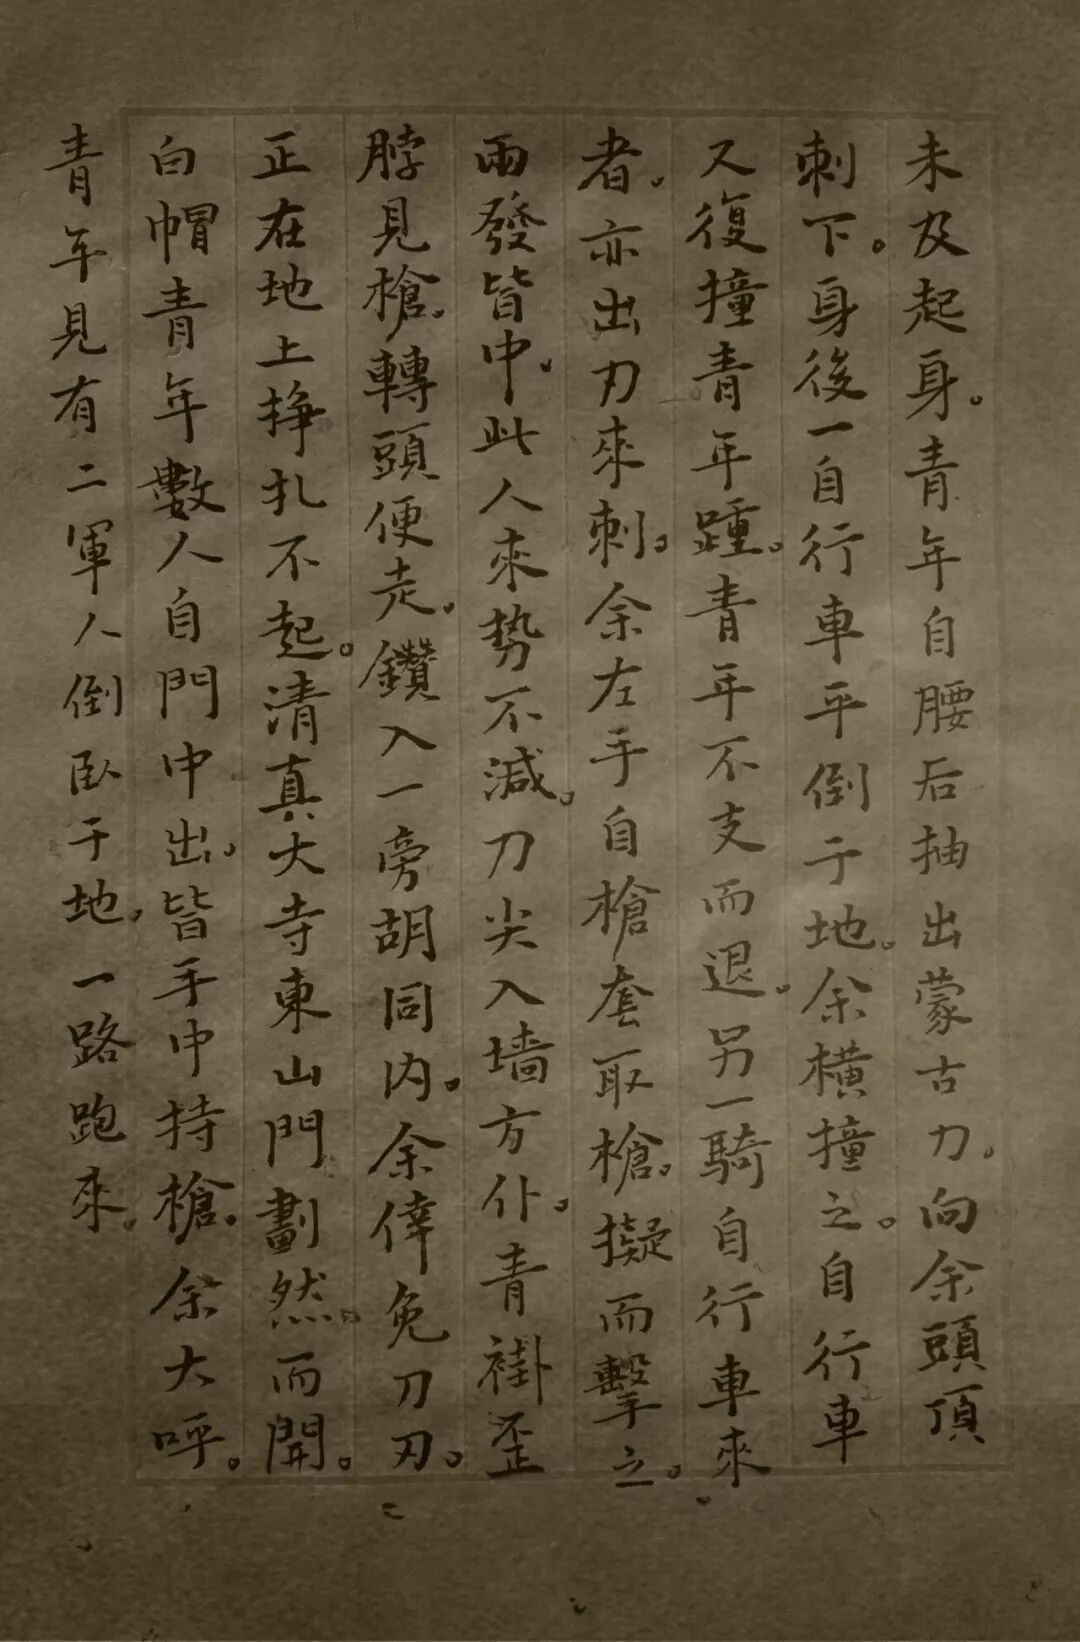 未及起身。青年自腰后抽出蒙古刀。向余頭頂
刺下。身後一自行車平倒于地。余橫撞之。自行車
又復撞青年踵。青年不支而退。另一騎自行車來
者。亦出刀來刺。余左手自槍套取槍。擬而擊之。
兩發皆中。此人來势不減。刀尖入墙方仆。青褂歪
脖見槍。轉頭便走。鑽入一旁胡同内。余倖免刀刃。
正在地上掙扎不起。清真大寺東山門劃然。而開。
白帽青年數人自門中出。皆手中持槍。余大呼。
青年見有二軍人倒卧于地。一路跑來。